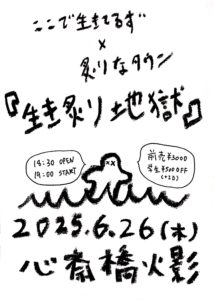 ここで生きてるず
×
炙りなタウン
『生き炙り地獄』
18:30 OPEN
19:00 START
前売¥3000
学生¥500OFF
(+1D)
2025.6.26(木)
心斎橋火影